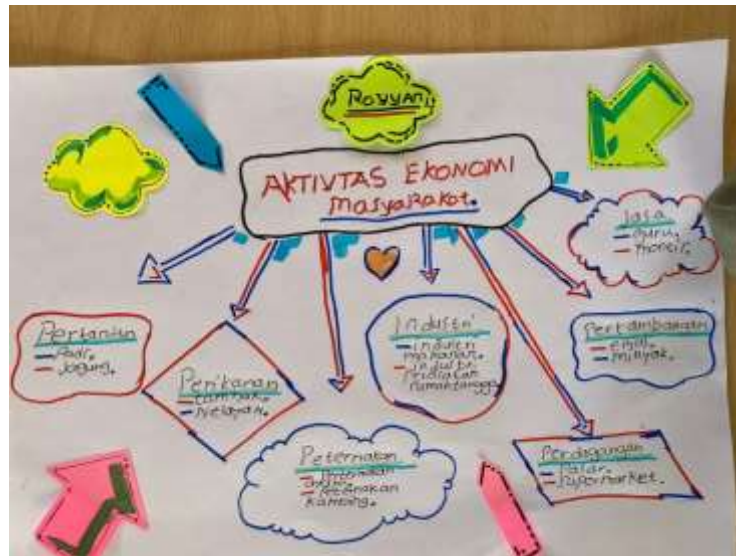 Royyan
AKTIVTAS EKONOMI
masyarakat.
Jasa
- Guru.
- montir.
Pertanian
- Padi.
- Jagung.
Perikanan
- tambak.
- Nelayan.
Industri
- industri
makanan.
- industri
Peralatan
rumah tangga.
Pertambangan
- emas.
- minyak.
Peternakan
- Peternakan
ayam.
- Peternakan
kambing.
Perdagangan
- Pasar.
- supermarket.